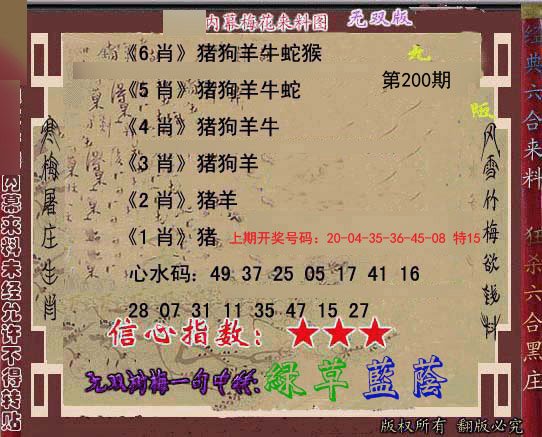 内幕梅花来料图 无双版
《6肖》猪狗羊牛蛇猴
九
第200期
《5肖》猪狗羊牛蛇
《4肖》猪狗羊牛
《3肖》猪狗羊
《2肖》猪羊
《1肖》猪 上期开奖号码：20-04-35-36-45-08 特15
心水码：49 37 25 05 17 41 16
28 07 31 11 35 47 15 27
信心指数：★★★
绿草蓝荫
版权所有 翻版必究
寒梅屠庄生肖
风雪竹梅欲钱料
内幕来料未经允许不得转贴
经典六合来料
狂杀六合黑庄